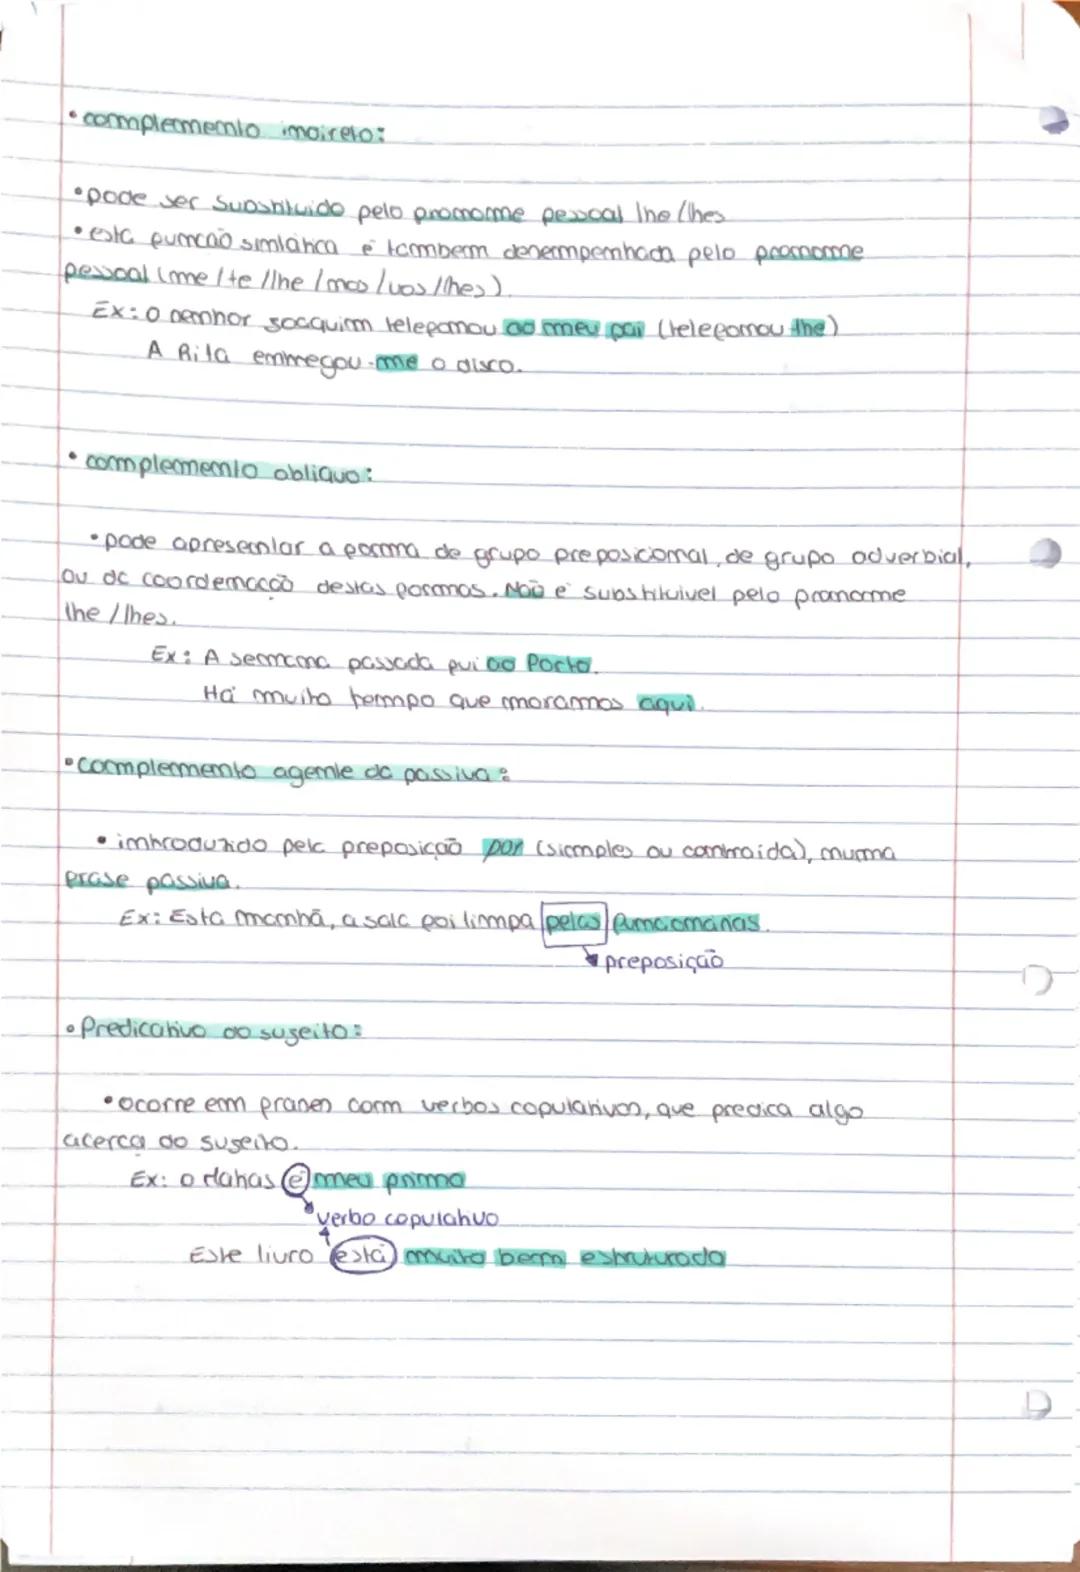 • complemento indireto:
• pode ser substituido pelo pronome pessoal lhe/lhes
• esta função sintática é também desempenhada pelo pronome
pessoal (me/te/lhe/nos/vos/lhes).
Ex: O senhor Joaquim telefonou ao meu pai (telefonou-lhe)
A Rita entregou-me o disco.
• complemento obliquo:
• pode apresentar a forma de grupo preposicional, de grupo adverbial,
ou da coordenação destas formas. Não é substituivel pelo pronome
lhe/lhes.
Ex: A semana passada fui ao Porto.
Há muito tempo que moramos aqui.
• Complemento agente da passiva:
• introduzido pela preposição por (simples ou contraída), numa
frase passiva.
Ex: Esta manhã, a sala foi limpa pelas funcionárias.
preposição
• Predicativo do sugeito:
• ocorre em frases com verbos copulativos, que predica algo
acerca do sugeito.
Ex: O é meu primo
verbo copulativo
Este livro está muito bem estruturado